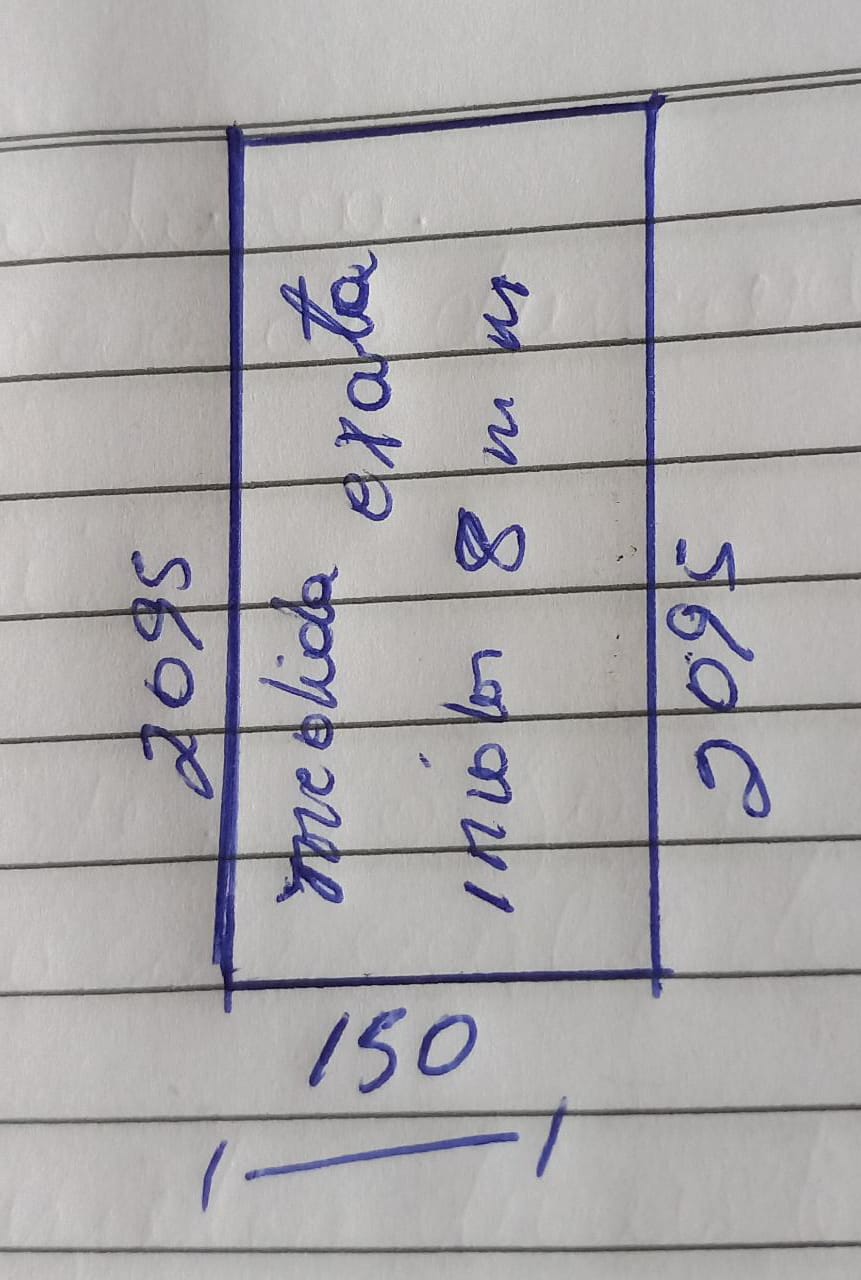 2095
medida exata
incolor 8 mm
2095
150